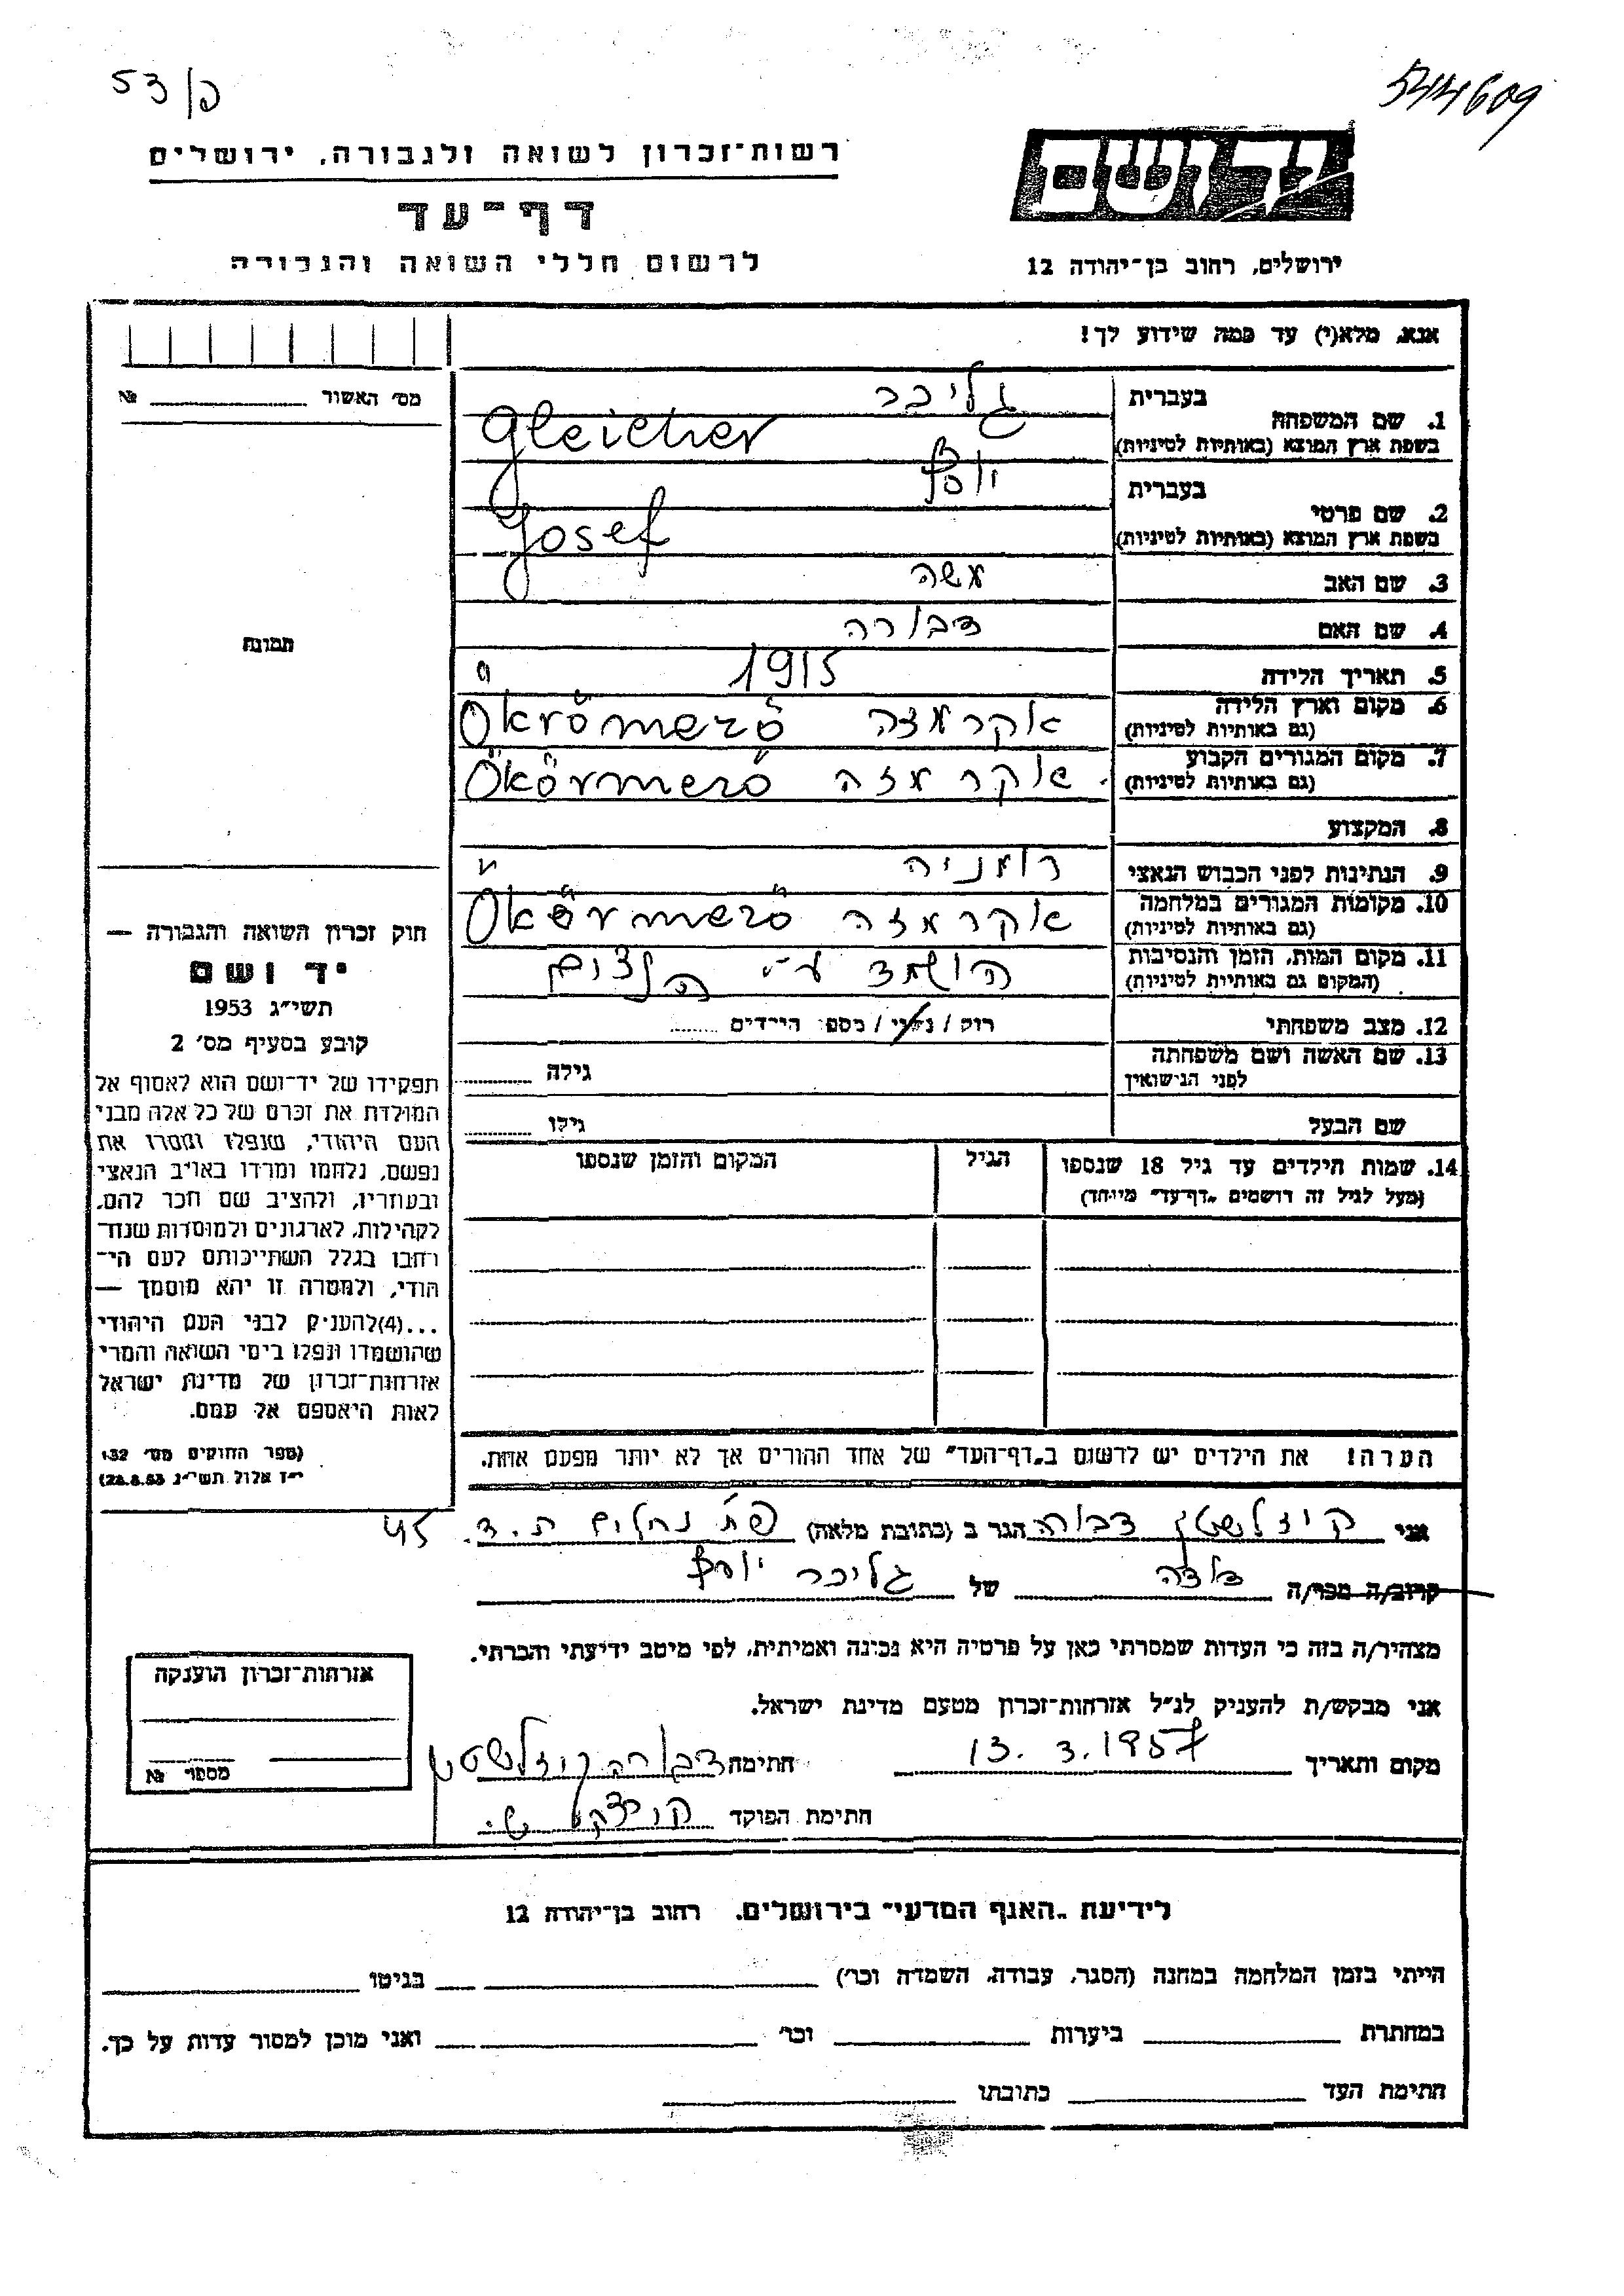 53/פ
544609
רשות־זכרון לשואה ולגבורה, ירושלים
יד ושם
דף־עד
לרשום חללי השואה והגבורה
ירושלים, רחוב בן־יהודה 12
אנא, מלא(י) עד כמה שידוע לך!
מס׳ האשור № 
בעברית גליכר
1. שם המשפחה
בשפת ארץ המוצא (באותיות לטיניות) Gleicher
בעברית יוסף
2. שם פרטי
בשפת ארץ המוצא (באותיות לטיניות) Josef
3. שם האב משה
4. שם האם דבורה
תמונה
5. תאריך הלידה 1915
6. מקום וארץ הלידה אקרמזה Okrömező
(גם באותיות לטיניות)
7. מקום המגורים הקבוע אקרמזה Ökörmező
(גם באותיות לטיניות)
8. המקצוע
9. הנתינות לפני הכבוש הנאצי רומניה
10. מקומות המגורים במלחמה אקרמזה Ökörmező
(גם באותיות לטיניות)
11. מקום המות, הזמן והנסיבות הושמד ע״י
(המקום גם באותיות לטיניות)
12. מצב משפחתי רוק / נשוי / מספר הילדים
13. שם האשה ושם משפחתה גילה
לפני הנישואין
שם הבעל גילו
14. שמות הילדים עד גיל 18 שנספו הגיל המקום והזמן שנספו
(מעל לגיל זה רושמים „דף־עד״ מיוחד)
הערה! את הילדים יש לרשום ב„דף־העד״ של אחד ההורים אך לא יותר מפעם אחת.
חוק זכרון השואה והגבורה —
יד ושם
תשי״ג 1953
קובע בסעיף מס׳ 2
תפקידו של יד־ושם הוא לאסוף אל
המולדת את זכרם של כל אלה מבני
העם היהודי, שנפלו ומסרו את
נפשם, נלחמו ומרדו באויב הנאצי
ובעוזריו, ולהציב שם וזכר להם,
לקהילות, לארגונים ולמוסדות שנח־
רבו בגלל השתייכותם לעם הי־
הודי, ולמטרה זו יהא מוסמך —
...(4)להעניק לבני העם היהודי
שהושמדו ונפלו בימי השואה והמרי
אזרחות־זכרון של מדינת ישראל
לאות היאספם אל עמם.
(ספר החוקים מס׳ 132
י״ז אלול תשי״ג 28.8.53)
אני קיזלשטן דבורה הגר ב (כתובת מלאה) פ״ת נחלים ת.ד. 45
קרוב/ה מכר/ה של גליכר יוסף
מצהיר/ה בזה כי העדות שמסרתי כאן על פרטיה היא נכונה ואמיתית, לפי מיטב ידיעתי והכרתי.
אני מבקש/ת להעניק לנ״ל אזרחות־זכרון מטעם מדינת ישראל.
מקום ותאריך 13.3.1957 חתימה דבורה קיזלשטן
חתימת הפוקד
אזרחות־זכרון הוענקה
מספר №
לידיעת „האגף המדעי״ בירושלים, רחוב בן־יהודה 12
הייתי בזמן המלחמה במחנה (הסגר, עבודה, השמדה וכו׳) בגיטו
במחתרת ביערות וכו׳ ואני מוכן למסור עדות על כך.
חתימת העד כתובתו